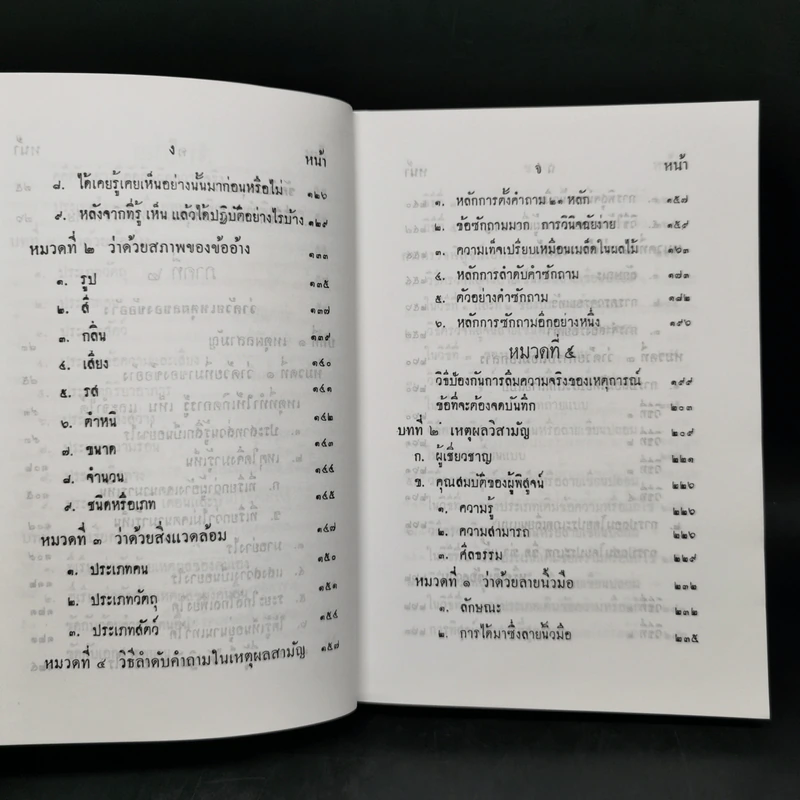 ง
หน้า
๘. ได้เคยรู้เคยเห็นอย่างนั้นมาก่อนหรือไม่ ๑๒๖
๙. หลังจากที่รู้ เห็น แล้วได้ปฏิบัติอย่างไรบ้าง ๑๒๙
หมวดที่ ๒ ว่าด้วยสภาพของข้ออ้าง ๑๓๓
๑. รูป ๑๓๕
๒. สี ๑๓๗
๓. กลิ่น ๑๓๙
๔. เสียง ๑๔๐
๕. รส ๑๔๑
๖. ตำหนิ ๑๔๒
๗. ขนาด ๑๔๓
๘. จำนวน ๑๔๔
๙. ชนิดหรือเภท ๑๔๕
หมวดที่ ๓ ว่าด้วยสิ่งแวดล้อม ๑๔๗
๑. ประเภทคน ๑๕๐
๒. ประเภทวัตถุ ๑๕๑
๓. ประเภทสัตว์ ๑๕๔
หมวดที่ ๔ วิธีลำดับคำถามในเหตุผลสามัญ ๑๕๗
จ
หน้า
๑. หลักการตั้งคำถาม ๒๑ หลัก ๑๕๗
๒. ข้อซักถามมาก การวินิจฉัยง่าย ๑๕๙
๓. ความเท็จเปรียบเหมือนเมล็ดในผลไม้ ๑๖๓
๔. หลักการลำดับคำซักถาม ๑๗๓
๕. ตัวอย่างคำซักถาม ๑๘๒
๖. หลักการซักถามอีกอย่างหนึ่ง ๑๙๖
หมวดที่ ๕
วิธีป้องกันการลืมความจริงของเหตุการณ์ ๑๙๙
ข้อที่จะต้องจดบันทึก ๒๐๓
บทที่ ๒ เหตุผลวิสามัญ ๒๐๙
ก. ผู้เชี่ยวชาญ ๒๒๑
ข. คุณสมบัติของผู้พิสูจน์ ๒๒๖
๑. ความรู้ ๒๒๖
๒. ความสามารถ ๒๒๖
๓. ศีลธรรม ๒๒๙
หมวดที่ ๑ ว่าด้วยลายนิ้วมือ ๒๓๒
๑. ลักษณะ ๒๓๒
๒. การได้มาซึ่งลายนิ้วมือ ๒๓๕